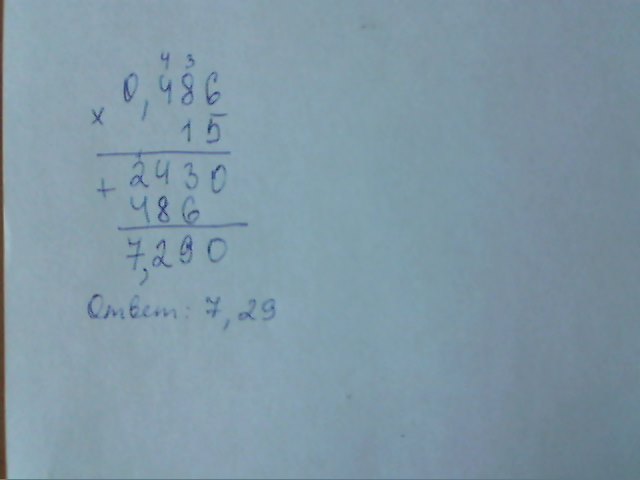 4 3
0,486
x
15
+ 2430
486
7,290
Ответ: 7,29